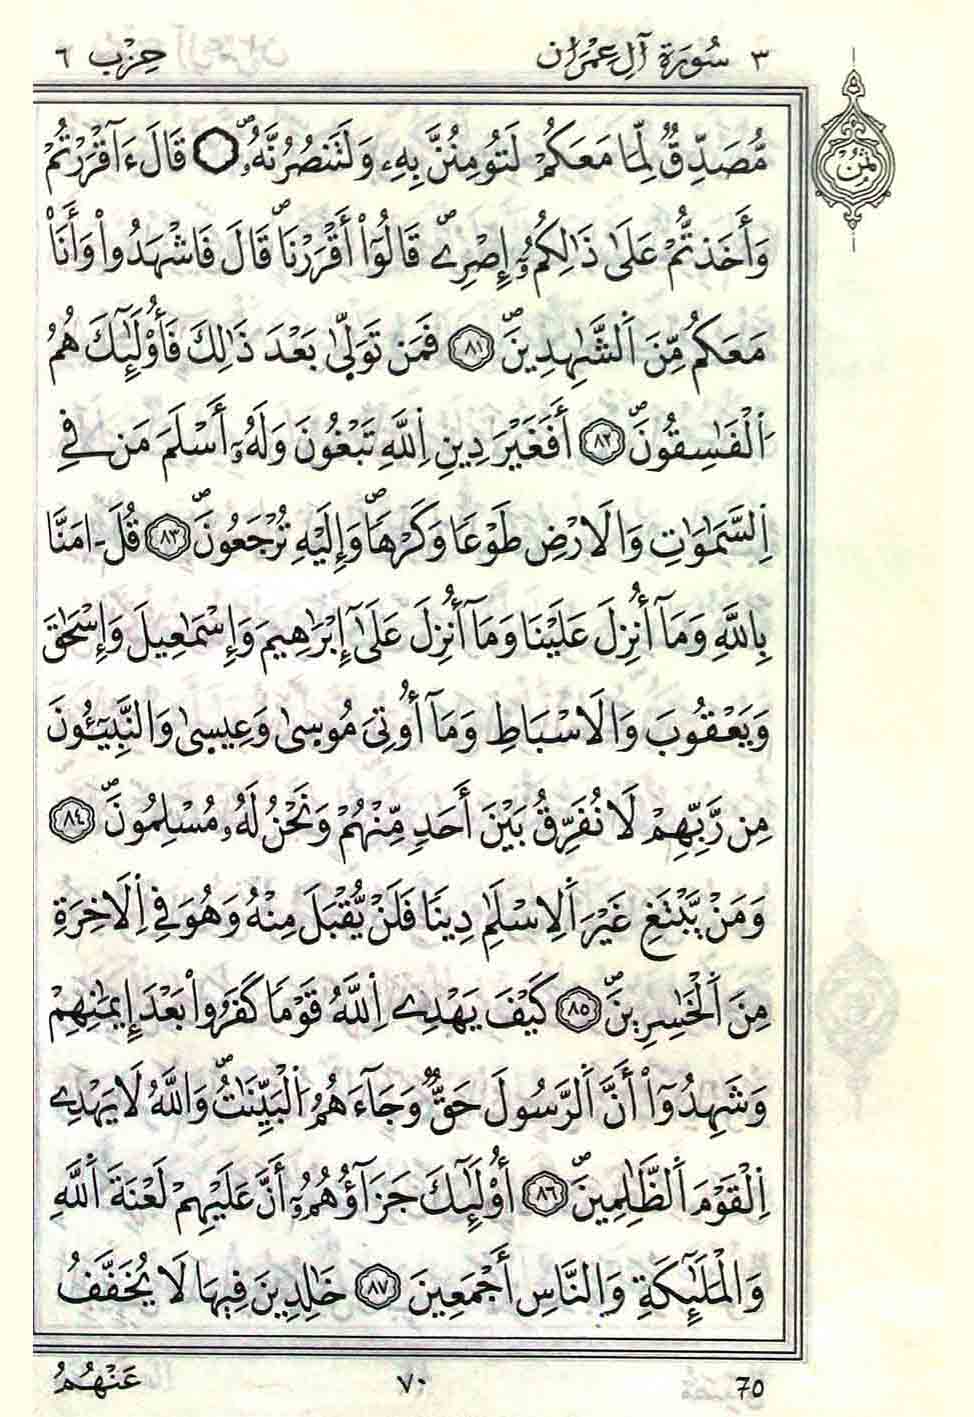 ٣ سُورَةُ آلِ عِمْرَان حِزْب ٦
ثُمُن
مُّصَدِّقٌ لِّمَا مَعَكُمْ لَتُومِنُنَّ بِهِۦ وَلَتَنصُرُنَّهُۥۖ قَالَ ءَآقْرَرْتُمْ
وَأَخَذتُّمْ عَلَىٰ ذَٰلِكُمُۥٓ إِصْرِےۖ قَالُوٓاْ أَقْرَرْنَاۖ قَالَ فَاشْهَدُواْ وَأَنَاْ
مَعَكُم مِّنَ اَ۬لشَّٰهِدِينَۖ ٨١ فَمَن تَوَلّ۪ىٰ بَعْدَ ذَٰلِكَ فَأُوْلَٰٓئِكَ هُمُ
اُ۬لْفَٰسِقُونَۖ ٨٢ أَفَغَيْرَ دِينِ اِ۬للَّهِ تَبْغُونَ وَلَهُۥٓ أَسْلَمَ مَن فِے
اِ۬لسَّمَٰوَٰتِ وَالَارْضِ طَوْعاً وَكَرْهاًۖ وَإِلَيْهِ تُرْجَعُونَۖ ٨٣ قُلَ اٰمَنَّا
بِاللَّهِ وَمَآ أُنزِلَ عَلَيْنَا وَمَآ أُنزِلَ عَلَىٰٓ إِبْرَٰهِيمَ وَإِسْمَٰعِيلَ وَإِسْحَٰقَ
وَيَعْقُوبَ وَالَاسْبَاطِ وَمَآ أُوتِيَ مُوس۪ىٰ وَعِيس۪ىٰ وَالنَّبِيٓـُٔونَ
مِن رَّبِّهِمْ لَا نُفَرِّقُ بَيْنَ أَحَدٍ مِّنْهُمْ وَنَحْنُ لَهُۥ مُسْلِمُونَۖ ٨٤
وَمَنْ يَّبْتَغِ غَيْرَ اَ۬لِاسْلَٰمِ دِيناً فَلَنْ يُّقْبَلَ مِنْهُ وَهُوَ فِے اِ۬لَاخِرَةِ
مِنَ اَ۬لْخَٰسِرِينَۖ ٨٥ كَيْفَ يَهْدِے اِ۬للَّهُ قَوْماً كَفَرُواْ بَعْدَ إِيمَٰنِهِمْ
وَشَهِدُوٓاْ أَنَّ اَ۬لرَّسُولَ حَقٌّ وَجَآءَهُمُ اُ۬لْبَيِّنَٰتُۖ وَاللَّهُ لَا يَهْدِے
اِ۬لْقَوْمَ اَ۬لظَّٰلِمِينَۖ ٨٦ أُوْلَٰٓئِكَ جَزَآؤُهُمُۥٓ أَنَّ عَلَيْهِمْ لَعْنَةَ اَ۬للَّهِ
وَالْمَلَٰٓئِكَةِ وَالنَّاسِ أَجْمَعِينَ ٨٧ خَٰلِدِينَ فِيهَا لَا يُخَفَّفُ
عَنْهُمُ ٧٠ 70